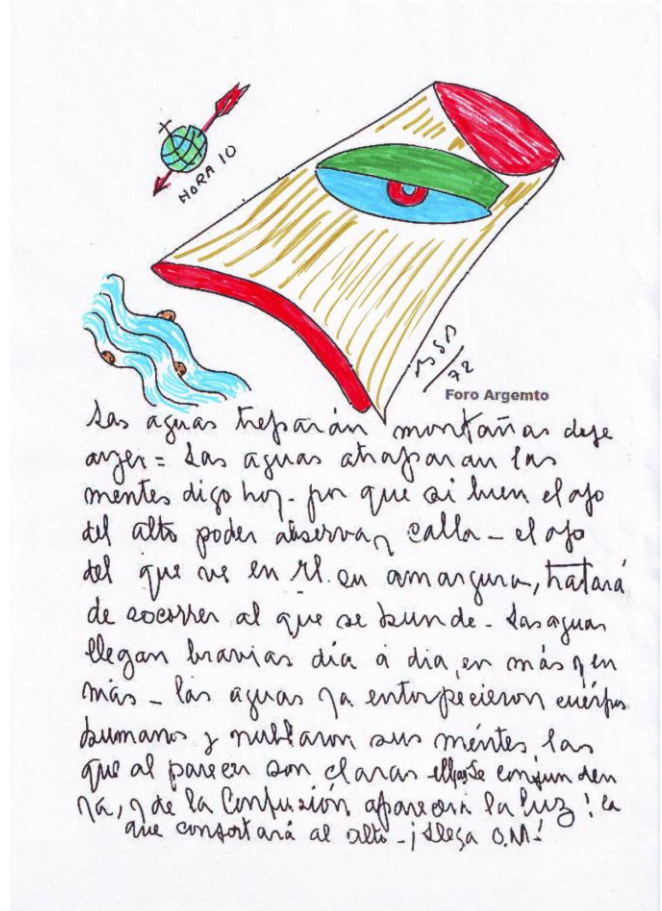 HORA 10
BSP
/72
Foro Argemto
Las aguas treparán montañas dije
ayer = Las aguas atraparan las
mentes digo hoy - por que si bien el ojo
del alto poder observa y calla - el ojo
del que ve en él su amargura, tratará
de socorrer al que se hunde - Las aguas
llegan bravias día a dia, en más y en
más - las aguas ya entorpecieron cuérpos
humanos y nublaron sus méntes las
que al parecer son claras se confunden
ya, y de la Confusión aparecerá la luz! la
que confortará al alto - ¡Llega O.M!